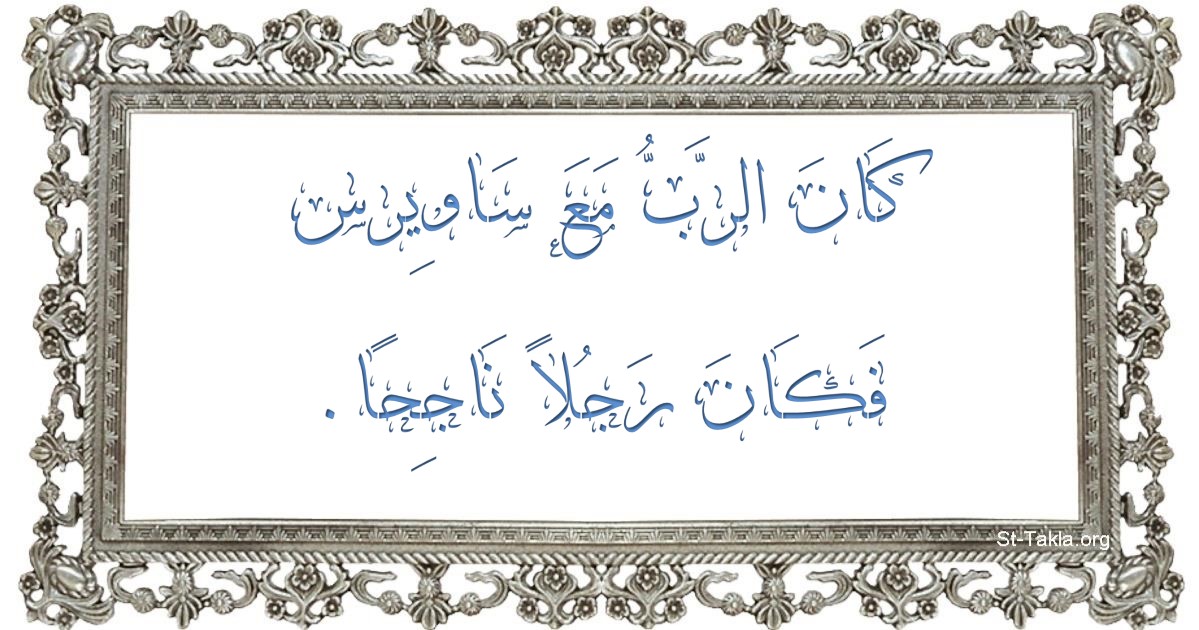 كَانَ الرَّبُّ مَعَ سَاويِرِس
فَكَانَ رَجُلاً نَاجِحًا .
St-Takla.org